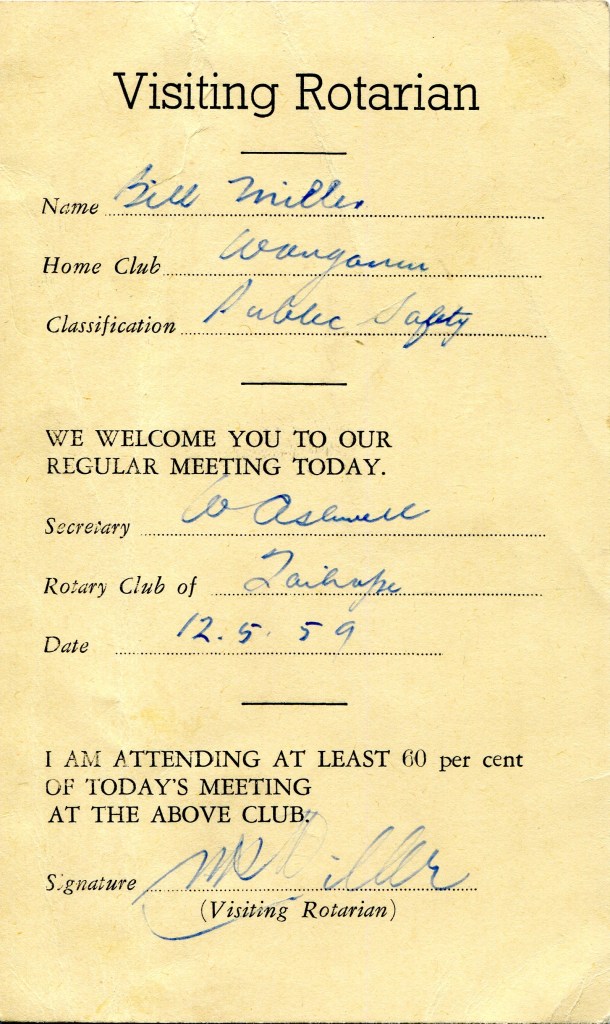 Visiting Rotarian
Name Bill Miller
Home Club Wanganui
Classification Public Safety
WE WELCOME YOU TO OUR
REGULAR MEETING TODAY.
Secretary W Ashwell
Rotary Club of Taihape
Date 12.5.59
I AM ATTENDING AT LEAST 60 per cent
OF TODAY'S MEETING
AT THE ABOVE CLUB.
Signature Miller
(Visiting Rotarian)